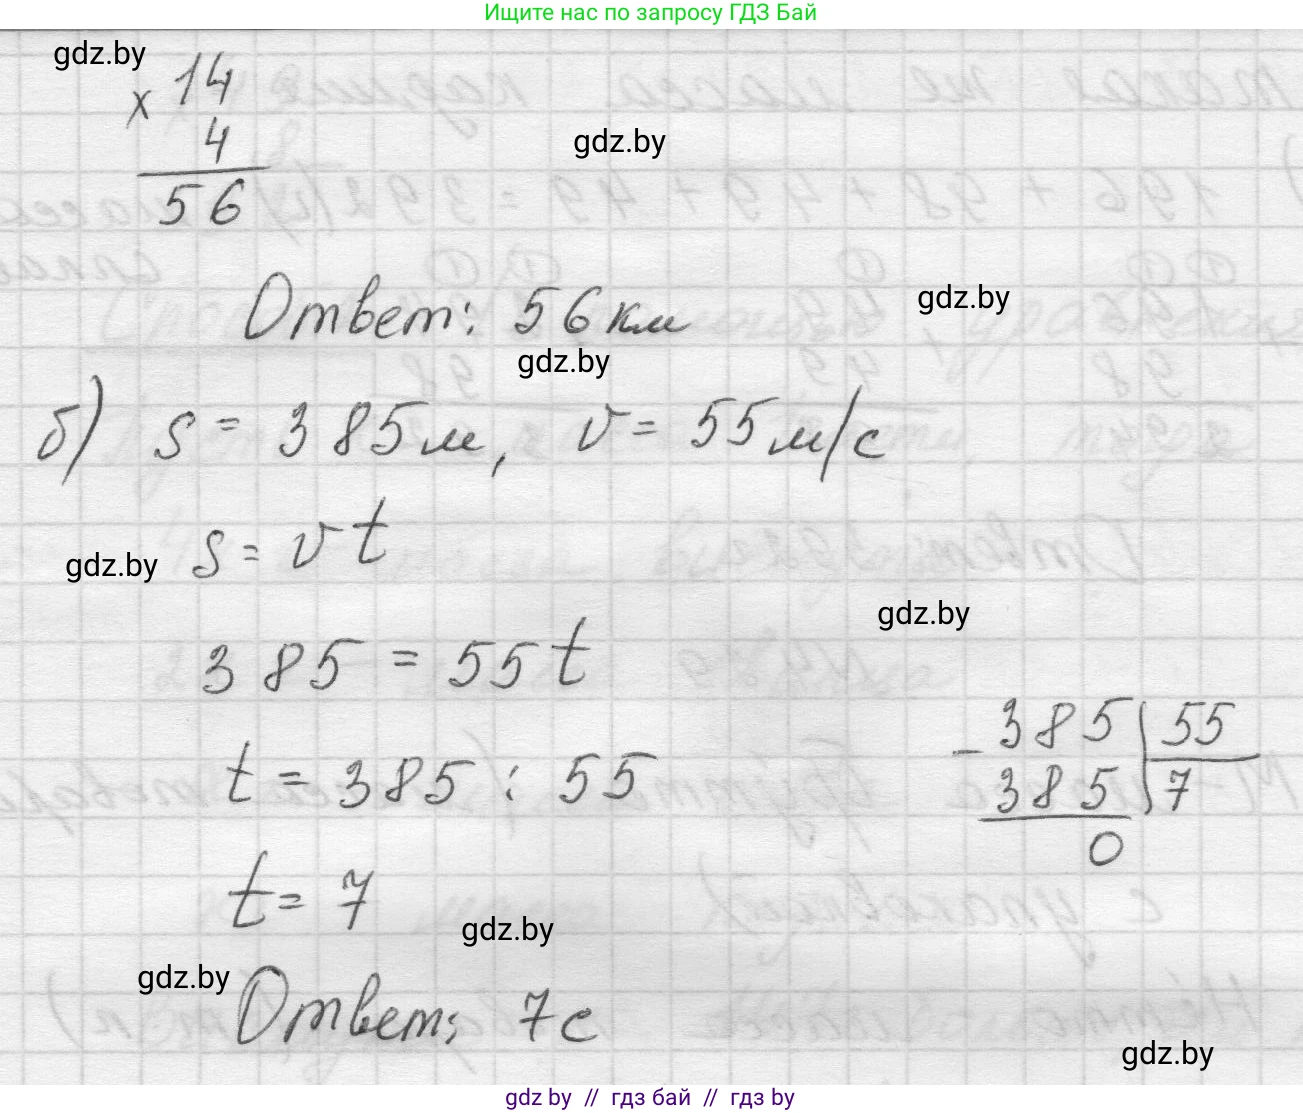 Ищите нас по запросу ГДЗ Бай
gdz.by
× 14
4
56
gdz.by
Ответ: 56 км
gdz.by
gdz.by
б) s = 385 м, v = 55 м/с
s = vt
gdz.by
gdz.by
385 = 55t
t = 385 : 55
- 385 | 55
385 | 7
0
t = 7
gdz.by
gdz.by
Ответ: 7 с
gdz.by
gdz by // гдз бай // гдз by